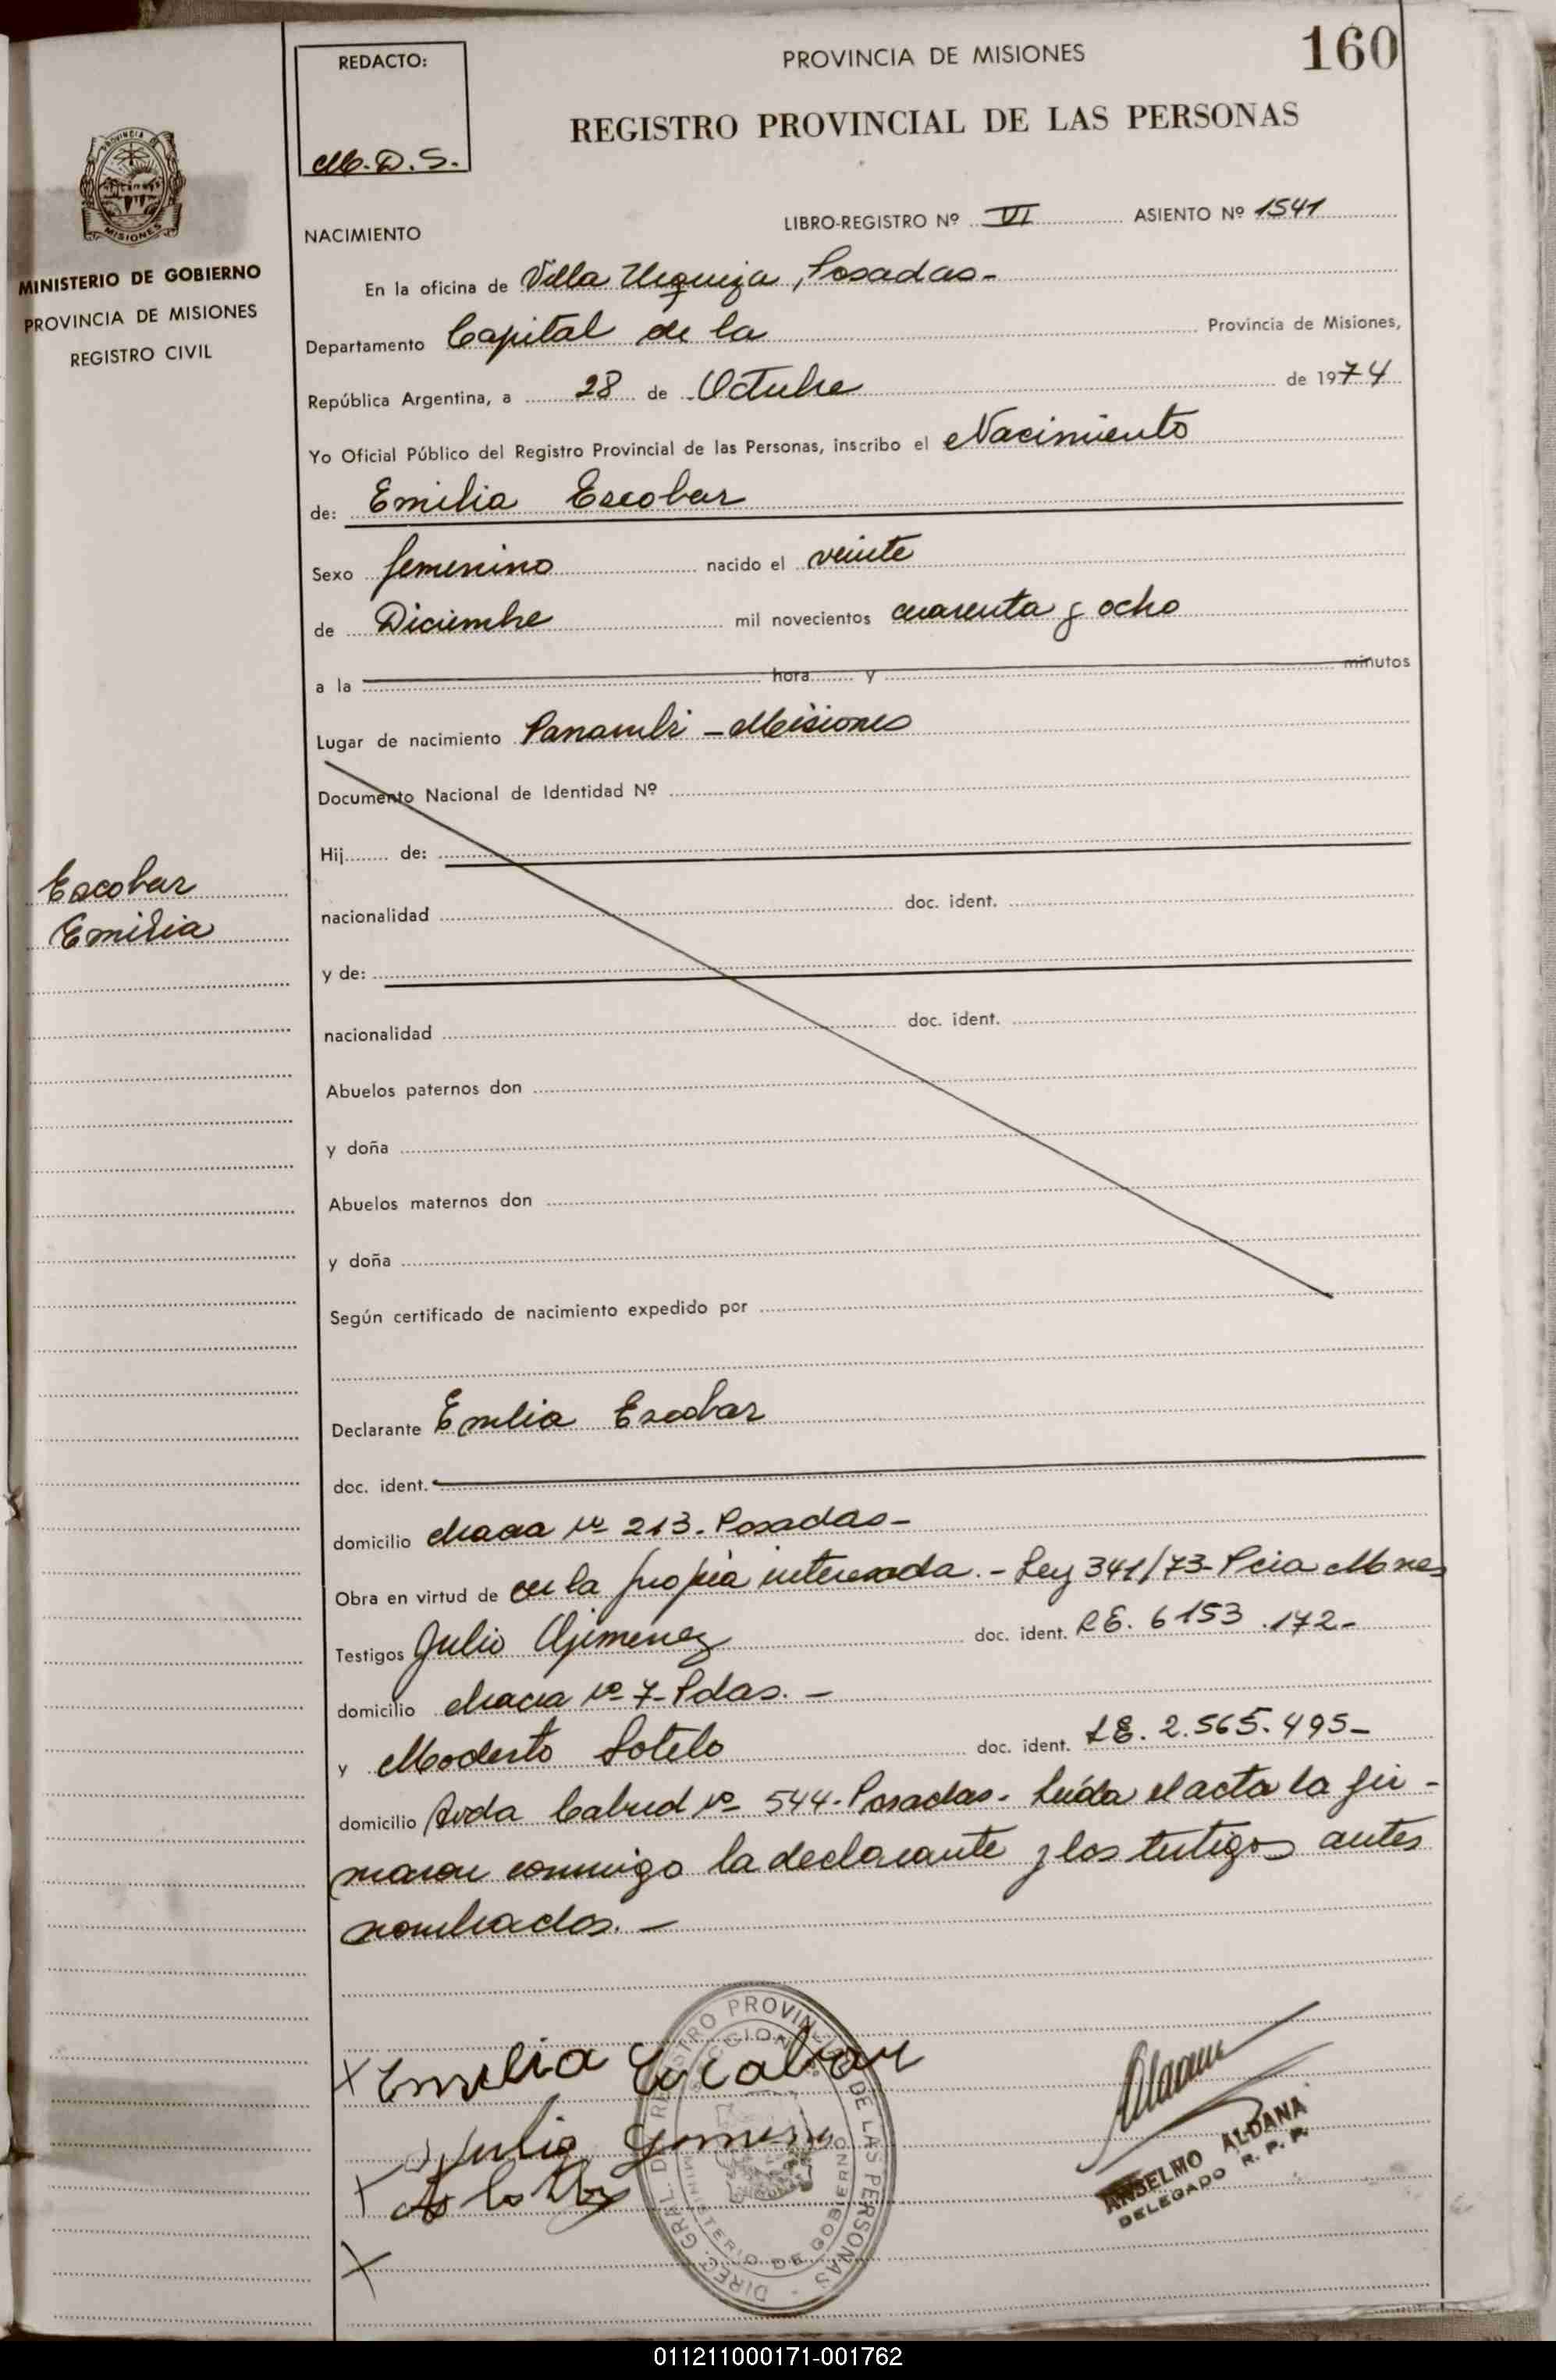 160
REDACTO:
M.D.S.
PROVINCIA DE MISIONES
REGISTRO PROVINCIAL DE LAS PERSONAS
PROVINCIA
MISIONES
MINISTERIO DE GOBIERNO
PROVINCIA DE MISIONES
REGISTRO CIVIL
NACIMIENTO
LIBRO-REGISTRO Nº VI ASIENTO Nº 1541
En la oficina de Villa Urquiza, Posadas-
Departamento Capital de la Provincia de Misiones,
República Argentina, a 28 de Octubre de 1974
Yo Oficial Público del Registro Provincial de las Personas, inscribo el Nacimiento
de: Emilia Escobar
Sexo femenino nacido el veinte
de Diciembre mil novecientos cuarenta y ocho
a la hora y minutos
Lugar de nacimiento Panambi - Misiones
Documento Nacional de Identidad Nº
Hij de:
Escobar
Emilia
nacionalidad doc. ident.
y de:
nacionalidad doc. ident.
Abuelos paternos don
y doña
Abuelos maternos don
y doña
Según certificado de nacimiento expedido por
Declarante Emilia Escobar
doc. ident.
domicilio chacra Nº 213. Posadas-
Obra en virtud de ser la propia interesada.- Ley 341/73- Pcia Mnes
Testigos Julio Gimenez doc. ident. LE. 6153.172-
domicilio chacra Nº 7- Pdas.-
y Modesto Sotelo doc. ident. LE. 2.565.495-
domicilio Avda Cabred Nº 544- Posadas- Leída el acta la fir-
maron conmigo la declarante y los testigos antes
nombrados.-
X Emilia Escobar
Julio
X
X
DIREC. GRAL. DEL REGISTRO PROVINCIAL DE LAS PERSONAS
MINISTERIO DE GOBIERNO
ANSELMO ALDANA
DELEGADO R. P. P.
011211000171-001762